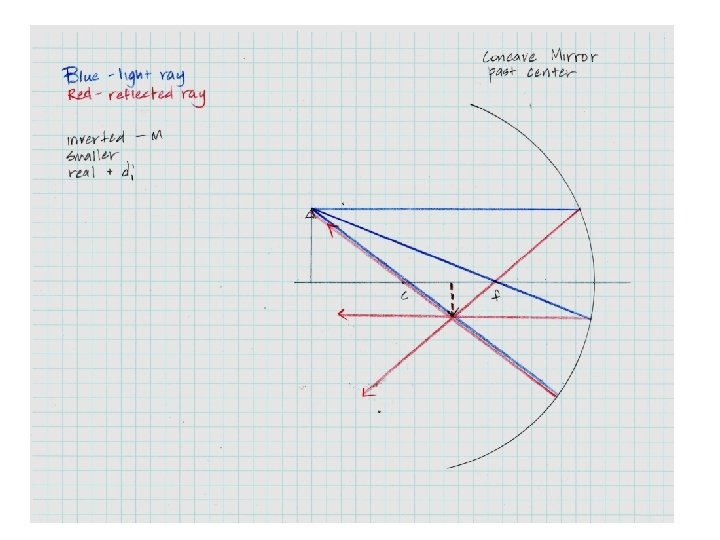 Concave Mirror
past center
Blue - light ray
Red - reflected ray
inverted - M
smaller
real + di
c
f